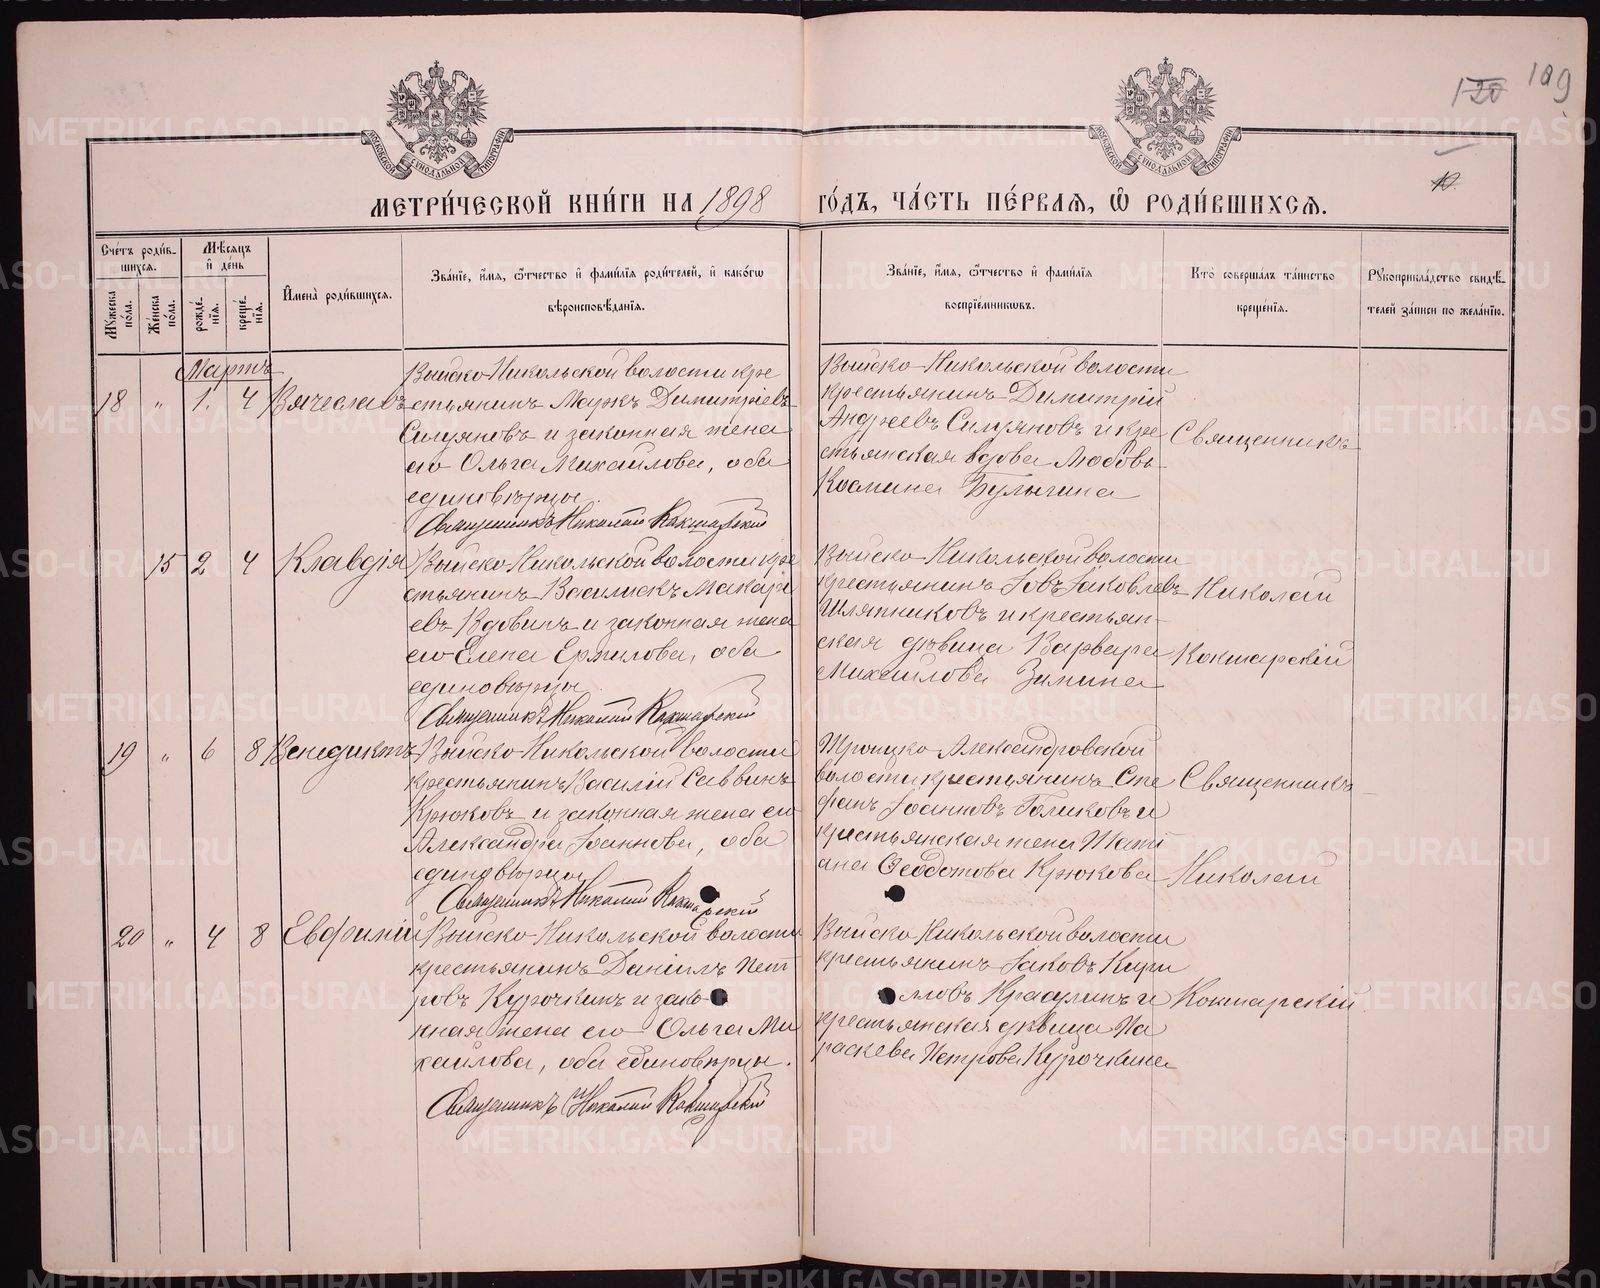 120 109
10.
МОСКОВСКОЙ СУНОДАЛЬНОЙ ТИПОГРАФІИ
МОСКОВСКОЙ СУНОДАЛЬНОЙ ТИПОГРАФІИ
МЕТРИ́ЧЕСКОЙ КНИ́ГИ НА 1898 ГО́ДЪ, ЧА́СТЬ ПЕ́РВАЯ, Ѿ РОДИ́ВШИХСЯ.
Сче́тъ роди́в-
шихся.
Мꙋжеска по́ла.
Же́нска по́ла.
Мѣ́сяцъ
и҆ де́нь
рожде́-
нїѧ.
креще́-
нїѧ.
И҆мена̀ роди́вшихся.
Зва́нїе, и҆́мѧ, ѻ҆́тчество и҆ фами́лїѧ роди́телей, и҆ како́гѡ
вѣроисповѣ́данїѧ.
Зва́нїе, и҆́мѧ, ѻ҆́тчество и҆ фами́лїѧ
воспрїе́мникѡвъ.
Кто̀ соверша́лъ та́инство
креще́нїѧ.
Рꙋкоприкла́дство свидѣ́-
телей за́писи по жела́нїю.
Мартъ
18 " 1. 4 Вячеславъ
Выйско-Никольской волости кре
стьянинъ Маркъ Димитріевъ
Силуяновъ и законная жена
его Ольга Михаилова, оба
единовѣрцы.
Священникъ Николай Кокшарскій
Выйско-Никольской волости
крестьянинъ Димитрій
Андреевъ Силуяновъ и кре
стьянская вдова Любовь
Космина Булыгина
Священникъ
15 2 4 Клавдія
Выйско-Никольской волости кре
стьянинъ Василискъ Макарі
евъ Вдовинъ и законная жена
его Елена Ермилова, оба
единовѣрцы.
Священникъ Николай Кокшарскій
Выйско-Никольской волости
крестьянинъ Іовъ Іаковлевъ
Шляпниковъ и крестьян-
ская дѣвица Варвара
Михаилова Зимина
Николай
Кокшарскій
19 " 6 8 Венедиктъ
Выйско-Никольской волости
крестьянинъ Василій Саввинъ
Крюковъ и законная жена его
Александра Іоаннова, оба
единовѣрцы
Священникъ Николай Кокшарскій
Троицко-Александровской
волости крестьянинъ Сте
фанъ Іоанновъ Голиковъ и
крестьянская жена Тати
ана Ѳеодотова Крюкова
Священникъ
Николай
20 " 4 8 Евфимій
Выйско-Никольской волости
крестьянинъ Даніилъ Пет
ровъ Курочкинъ и зако
нная жена его Ольга Ми
хаилова, оба единовѣрцы.
Священникъ Николай Кокшарскій
Выйско-Никольской волости
крестьянинъ Іаковъ Кири
лловъ Красулинъ и
крестьянская дѣвица Па
раскева Петрова Курочкина
Кокшарскій.
METRIKI.GASO-URAL.RU